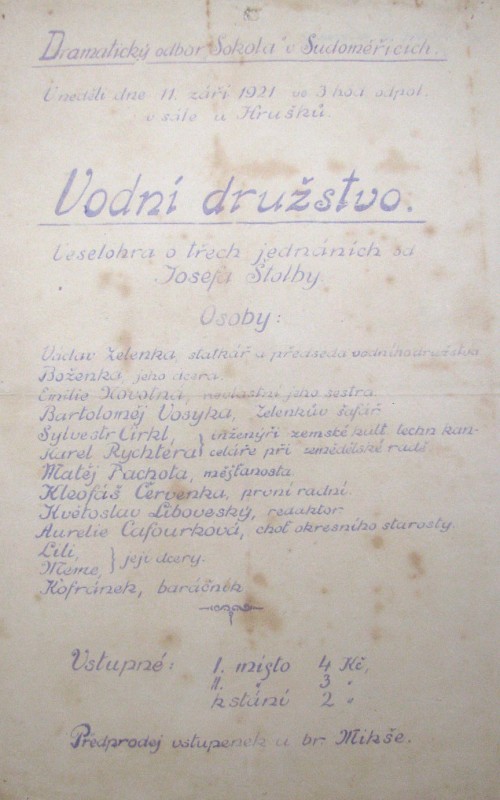 Dramatický odbor "Sokola" v Sudoměřicích.
V neděli dne 11. září 1921 ve 3 hod odpol.
v sále u Hrušků.
Vodní družstvo.
Veselohra o třech jednáních od
Josefa Štolby.
Osoby:
Václav Zelenka, statkář a předseda vodního družstva
Boženka, jeho dcera.
Emilie Novotná, nevlastní jeho sestra.
Bartoloměj Vosyka, Zelenkův šafář
Sylvestr Cirkl, } inženýři zemské kult. techn kan-
Karel Rychtera } celáře při zemědělské radě
Matěj Pachota, měšťanosta
Kleofáš Červenka, první radní.
Květoslav Liboveský, redaktor
Aurelie Cafourková, choť okresního starosty.
Lili, } její dcery.
Meme, }
Kofránek, baráčník
Vstupné: I. místo 4 Kč,
II. " 3 "
k stání 2 "
Předprodej vstupenek u br Mikše.